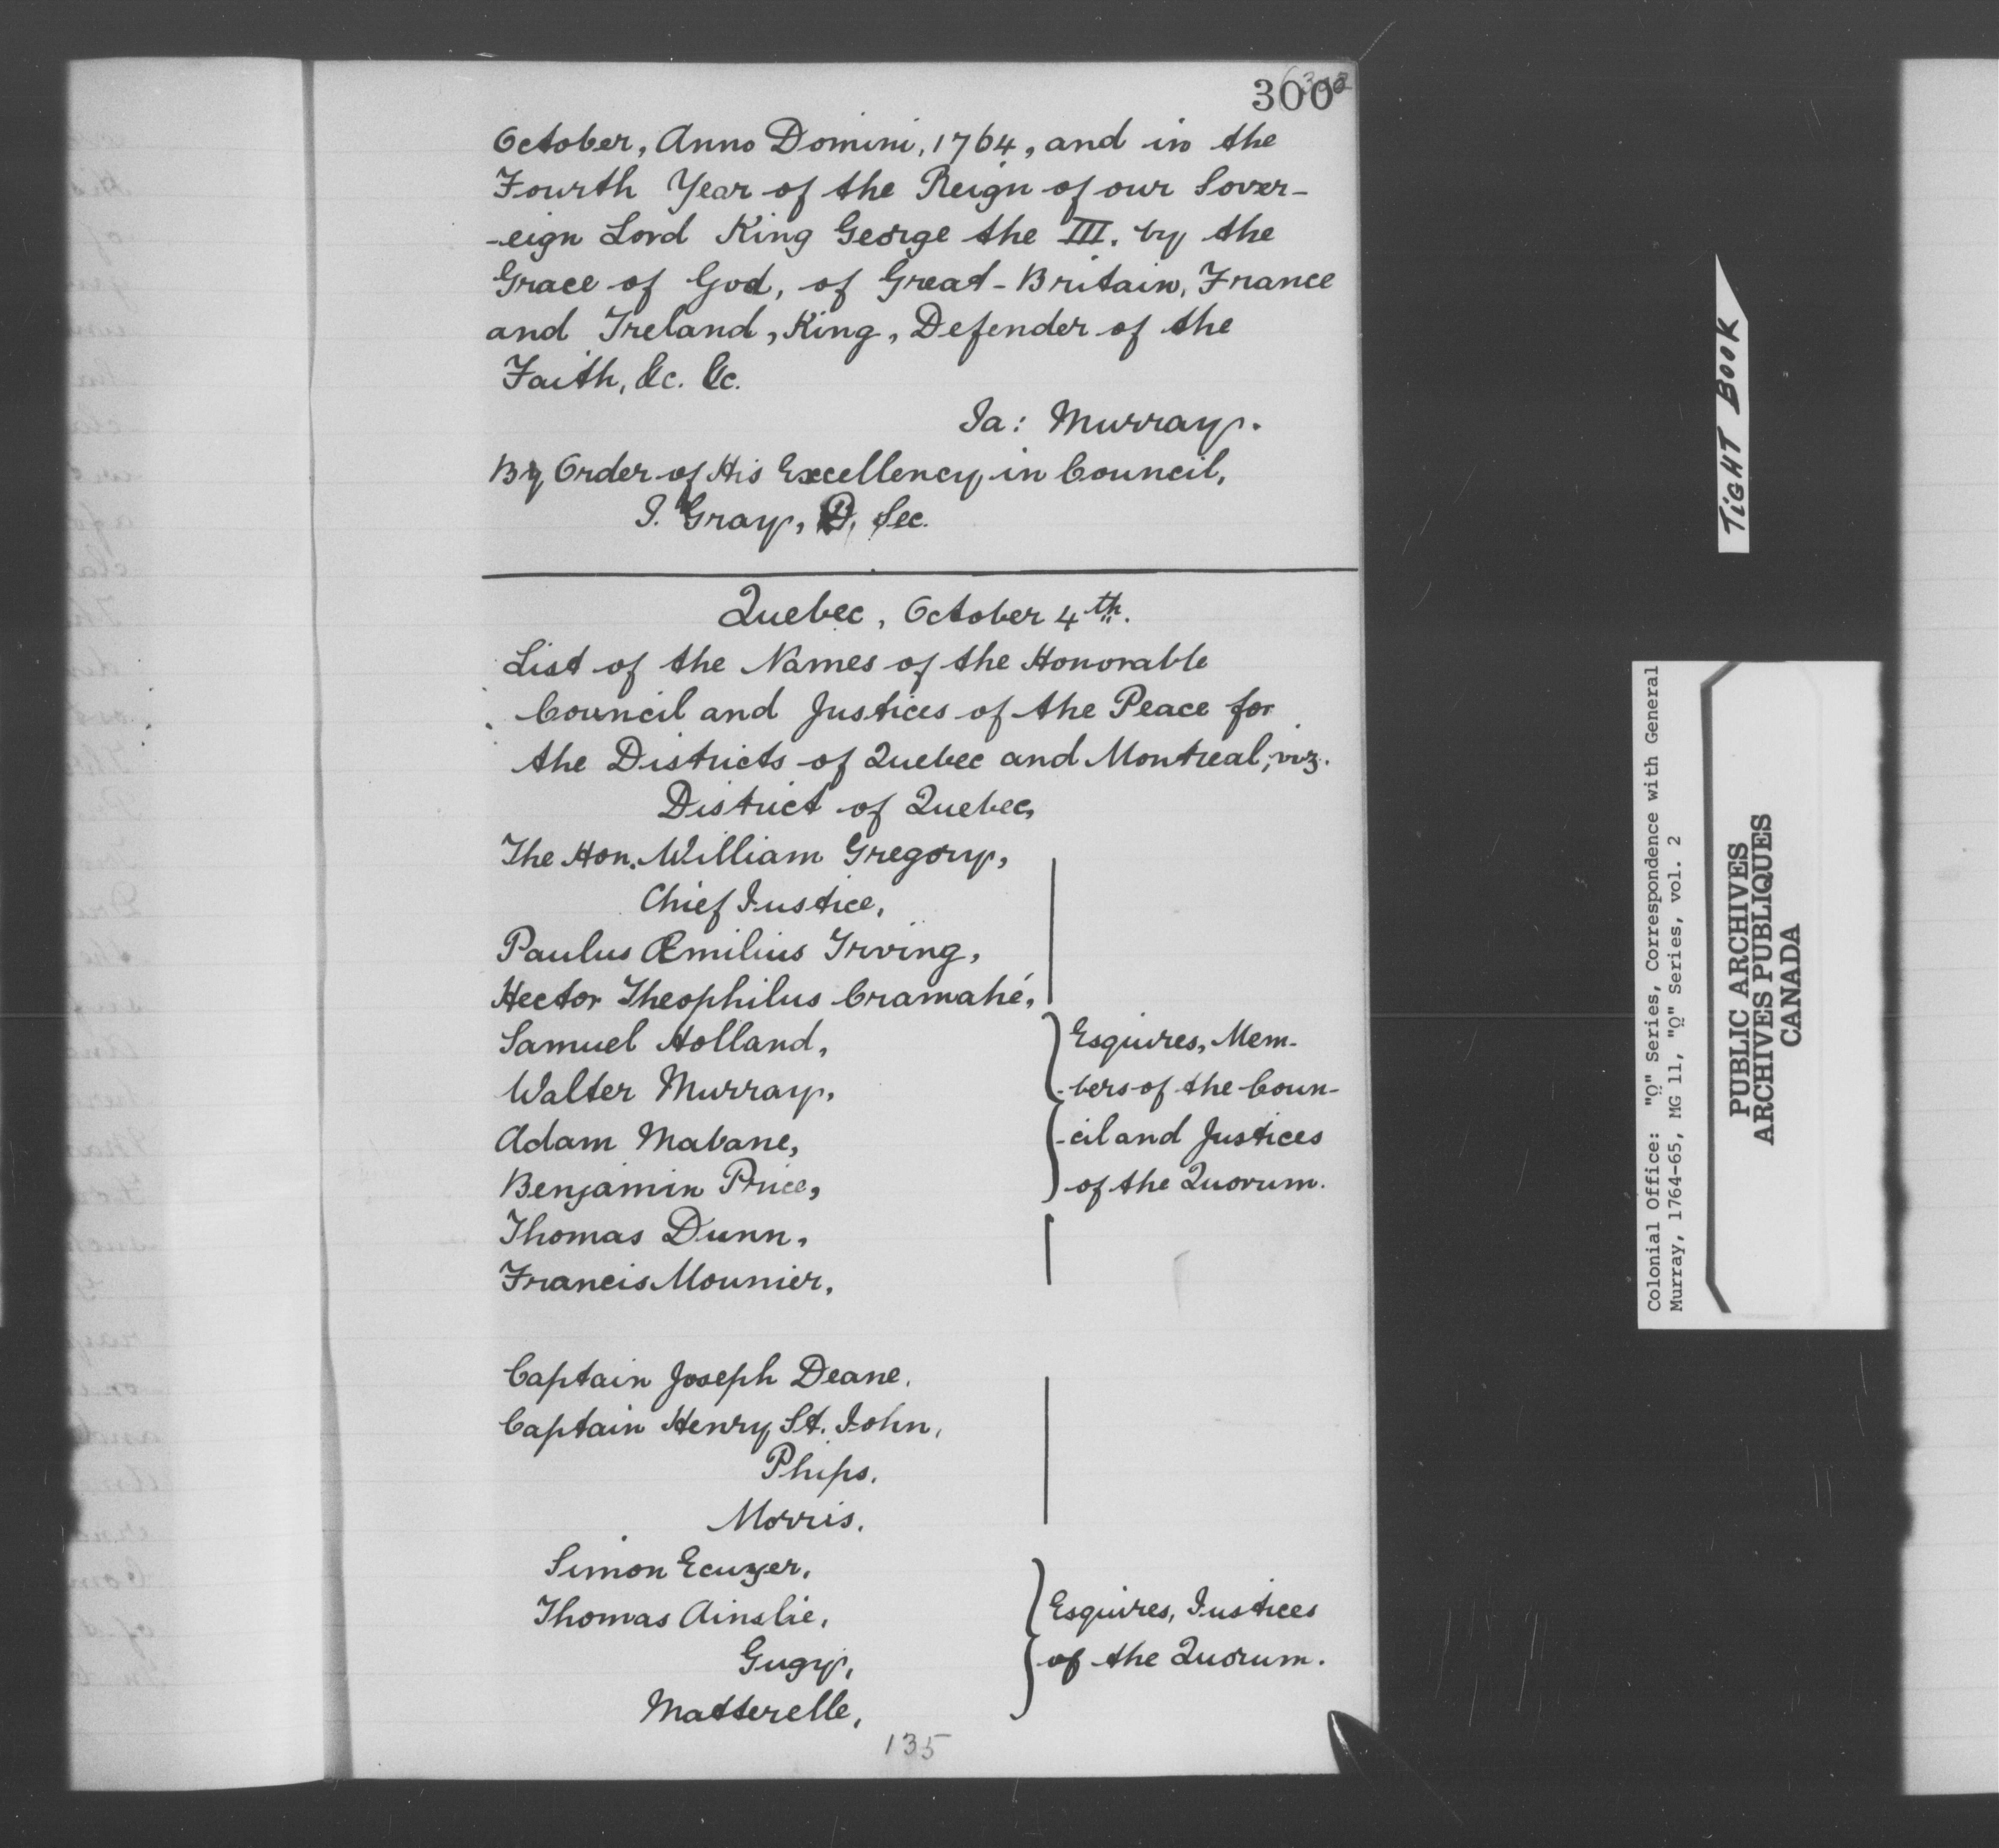 300
October, Anno Domini, 1764, and in the
Fourth Year of the Reign of our Sover-
-eign Lord King George the III. by the
Grace of God, of Great-Britain, France
and Ireland, King, Defender of the
Faith, &c. &c.
Ja: Murray.
By Order of His Excellency in Council,
J. Gray, D. Sec.
Quebec, October 4th.
List of the Names of the Honorable
Council and Justices of the Peace for
the Districts of Quebec and Montreal; viz.
District of Quebec,
The Hon. William Gregory,
Chief Justice,
Paulus Æmilius Irving,
Hector Theophilus Cramahé,
Samuel Holland,
Walter Murray,
Adam Mabane,
Benjamin Price,
Thomas Dunn,
Francis Mounier,
Esquires, Mem-
-bers of the Coun-
-cil and Justices
of the Quorum.
Captain Joseph Deane,
Captain Henry St. John,
Phips.
Morris.
Simon Ecuyer,
Thomas Ainslie,
Gugy,
Matterelle,
Esquires, Justices
of the Quorum.
135
TIGHT BOOK
Colonial Office: "Q" Series, Correspondence with General
Murray, 1764-65, MG 11, "Q" Series, vol. 2
PUBLIC ARCHIVES
ARCHIVES PUBLIQUES
CANADA